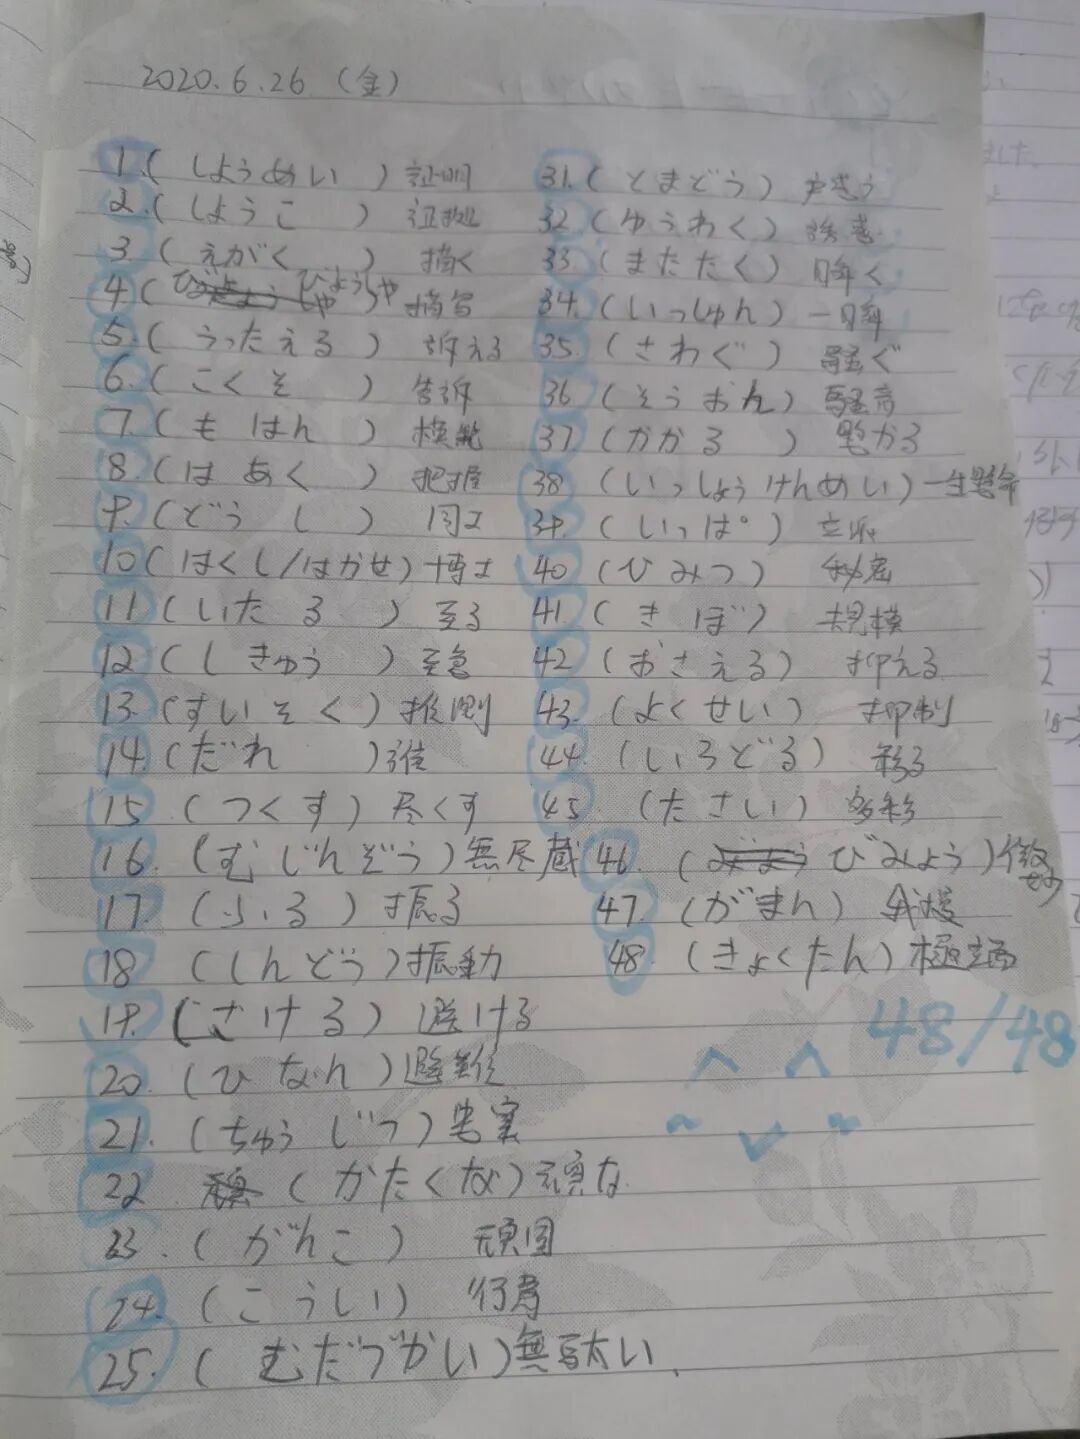 2020.6.26（金）
1.（しようめい）証明
2.（しようこ）证拠
3（えがく）描く
4（びょうしゃ）描写
5.（うったえる）訴える
6.（こくそ）告訴
7.（もはん）模範
8.（はあく）把握
9.（どうし）同士
10（はくし/はかせ）博士
11（いたる）至る
12（しきゅう）至急
13.（すいそく）推測
14.（だれ）誰
15（つくす）尽くす
16.（むじんぞう）無尽蔵
17.（ふる）振る
18（しんどう）振動
19.（さける）避ける
20.（ひなん）避難
21.（ちゅうじつ）忠実
22（かたくな）頑な
23.（がんこ）頑固
24.（こうい）行為
25.（むだづかい）無駄い
31.（とまどう）戸惑う
32.（ゆうわく）誘惑
33.（またたく）瞬く
34.（いっしゅん）一瞬
35.（さわぐ）騒ぐ
36（そうおん）騒音
37.（かかる）懸かる
38（いっしょうけんめい）一生懸命
39.（いっぱ°）立派
40（ひみつ）秘密
41.（きぼ）規模
42（おさえる）抑える
43.（よくせい）抑制
44.（いろどる）彩る
45（たさい）多彩
46.（びみょう）微妙
47.（がまん）我慢
48.（きょくたん）極端
48/48